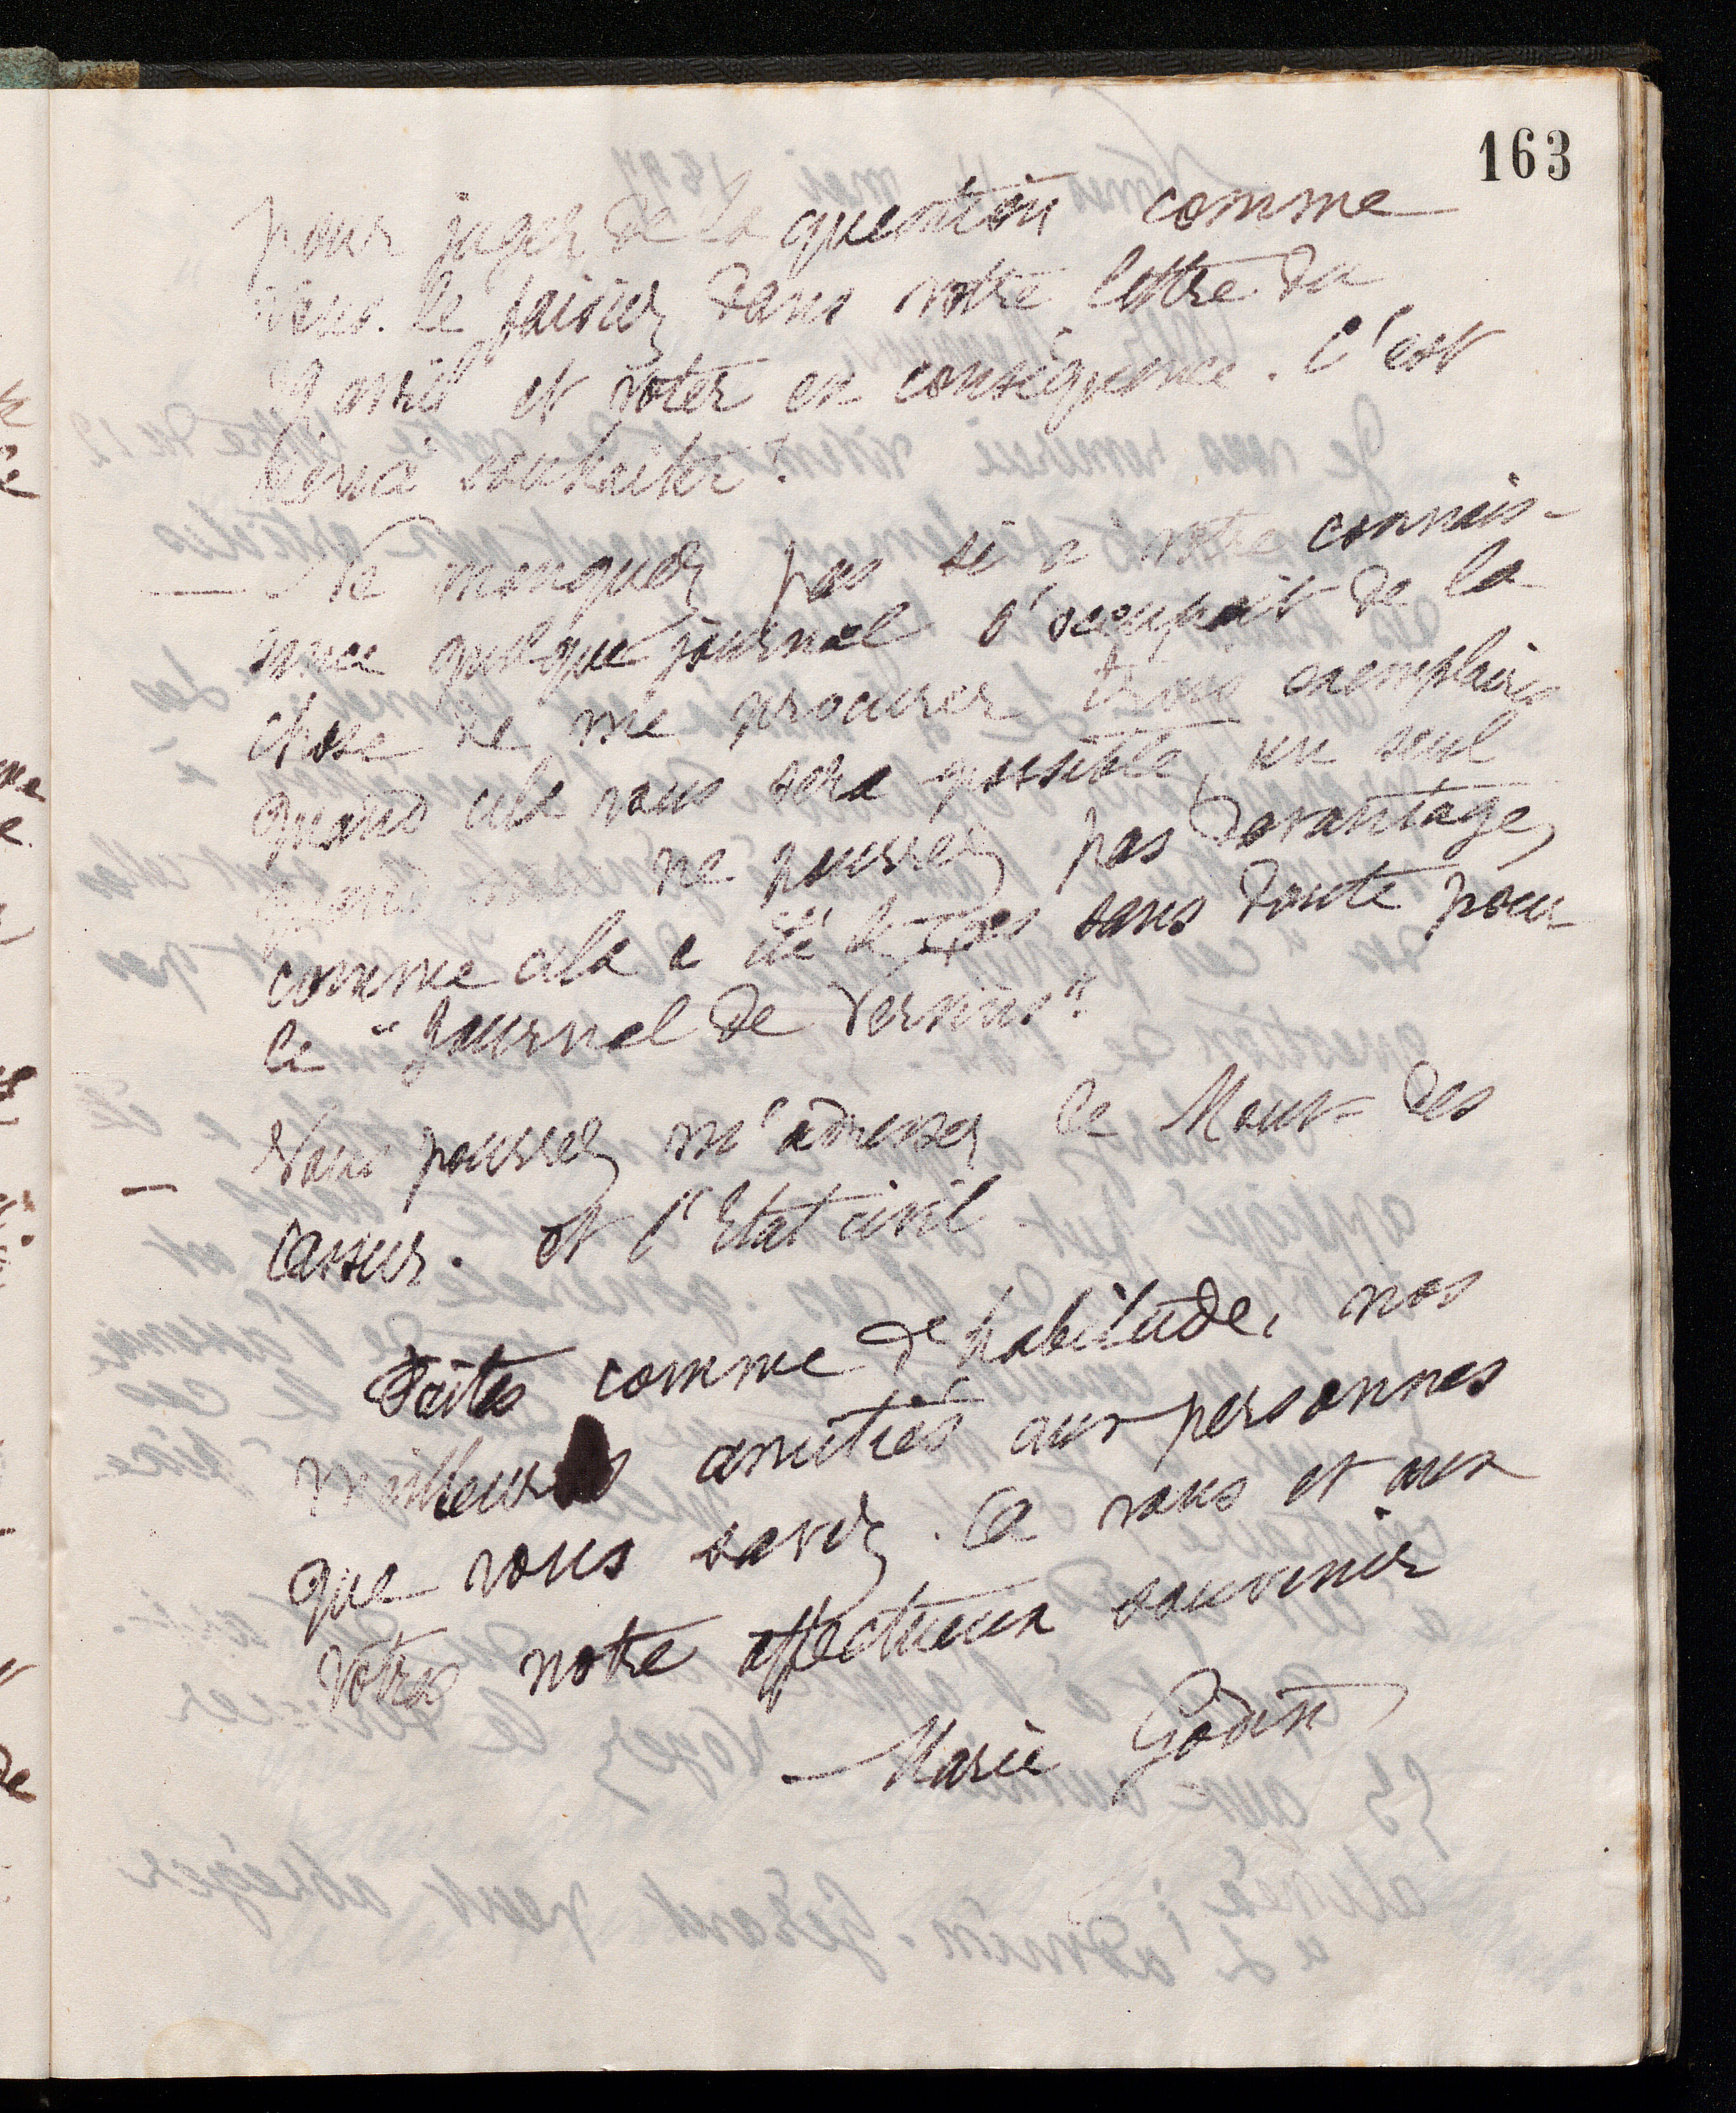 163
pour juger de la question comme
vous le faisiez dans votre lettre du
9 avril et voter en conséquence. C'est
bien à souhaiter !
— Ne manquez pas si à votre connais-
sance quelque journal s'occupait de la
chose de me procurer trois exemplaires
quand cela vous sera possible, un seul
quand vous ne pourrez pas davantage,
comme cela a été le cas sans doute pour
le "Journal de Vervins".
— Vous pourrez m'adresser le Mout des
casseur. et l'Etat civil
Faites comme d'habitude, nos
meilleures amitiés aux personnes
que vous savez. A vous et aux
vôtres notre affectueux souvenir
Marie Godin